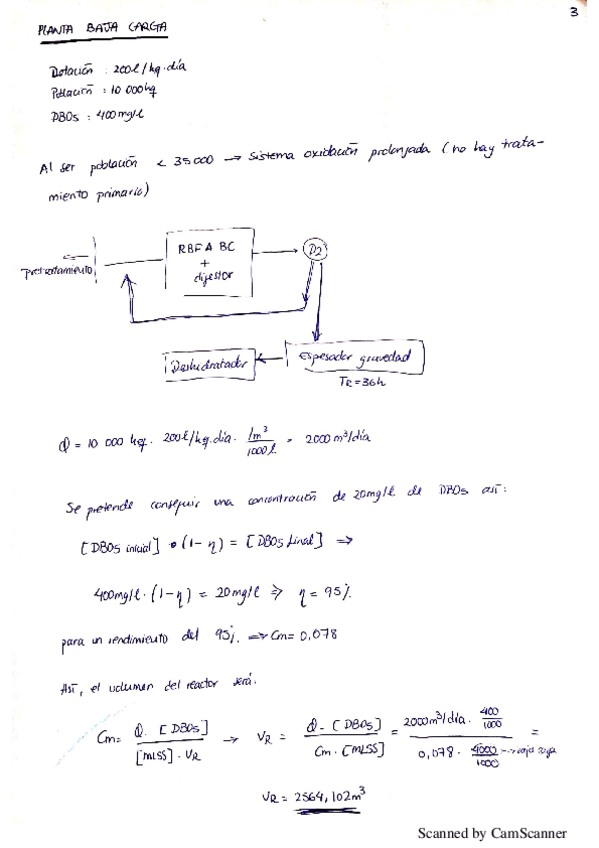 3
PLANTA BAJA CARGA
Dotación : 200l/hg.día
Población : 10 000hg
DBO5 : 400mg/l
Al ser población < 35000 → Sistema oxidación prolongada (no hay trata-
miento primario)
RBFA BC
+
digestor
D2
Pretratamiento
Deshidratador
Espesador gravedad
TR=36h
Q = 10 000 hg. 200l/hg.día. 1m³/1000l = 2000m³/día
Se pretende conseguir una concentración de 20mg/l de DBO5 así:
[DBO5 inicial] • (1-η) = [DBO5 final] ⇒
400mg/l. (1-η) = 20mg/l ⇒ η = 95%
para un rendimiento del 95% ⇒ Cm= 0,078
Así, el volumen del reactor será.
Cm= Q. [DBO5] / [MLSS].VR → VR = Q. [DBO5] / Cm. [MLSS] = 2000m³/día. 400/1000 / 0,078. 4000/1000 =
VR = 2564,102m³
Scanned by CamScanner